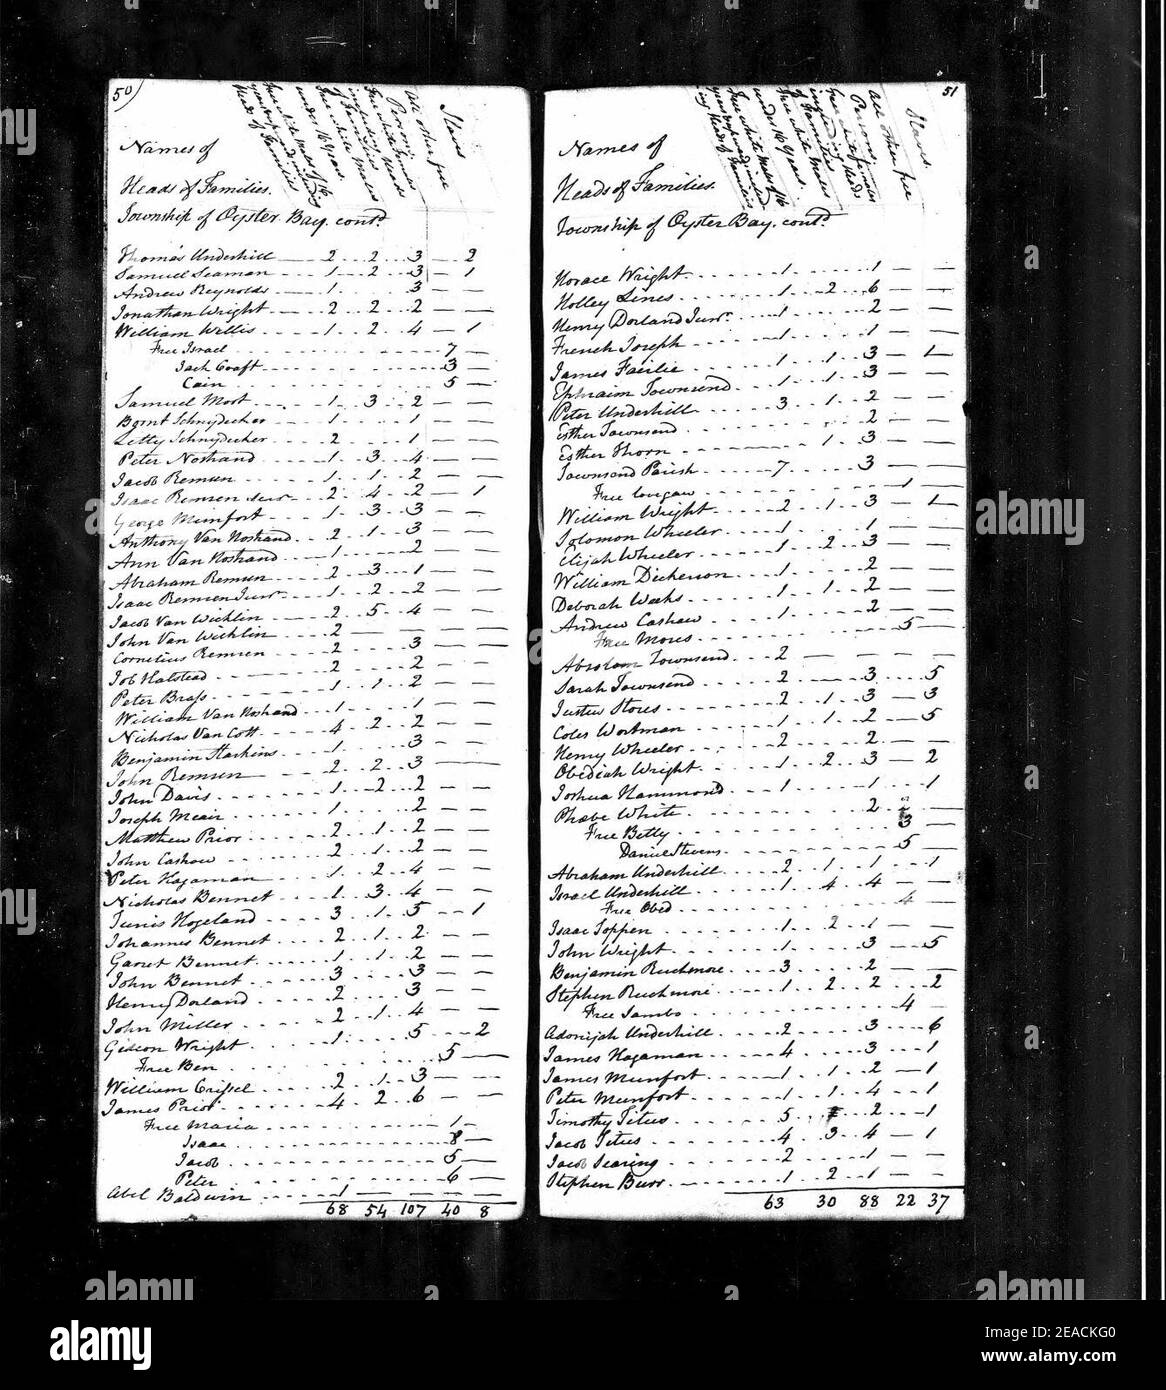 50
Names of
Heads of Families.
Township of Oyster Bay. contd.
Free white Males of 16 years and upwards including heads of Families
Free white Males under 16 years.
Free white Females including heads of Families
All other free Persons
Slaves
Thomas Underhill 2 2 3 — 2
Samuel Seaman 1 2 3 — 1
Andrew Reynolds 1 3 —
Jonathan Wright 2 2 2 —
William Willis 1 2 4 — 1
Free Israel 7 —
Jack Craft 3 —
Cain 5 —
Samuel Mott 1 3 2 — —
Bornt Schnydecker 1 1 — —
Letty Schnydecker 2 1 — —
Peter Nostrand 1 3 4 — —
Jacob Remsen 1 1 2 — —
Isaac Remsen Senr 2 4 2 — 1
George Munfort 1 3 3 — —
Anthony Van Nostrand 2 1 3 — —
Ann Van Nostrand 1 2 — —
Abraham Remsen 2 3 1 — —
Isaac Remsen Junr 1 2 2 — —
Jacob Van Wicklin 2 5 4 — —
John Van Wicklin 2 — — — —
Cornelius Remsen 2 3 — —
Job Halstead 2 2 — —
Peter Brass 1 1 2 — —
William Van Nostrand 1 1 — —
Nicholas Van Cott 4 2 2 — —
Benjamin Haskins 1 3 — —
John Remsen 2 2 3 — —
John Davis 1 2 2 — —
Joseph Mear 1 2 — —
Matthew Prior 2 1 2 — —
John Cashow 2 1 2 — —
Peter Hagaman 1 2 4 — —
Nicholas Bennet 1 3 4 — —
Tunis Hogeland 3 1 5 — 1
Johannes Bennet 2 1 2 — —
Garret Bennet 1 1 2 — —
John Bennet 3 3 — —
Henry Dorland 2 3 — —
John Miller 2 1 4 — —
Gideon Wright 1 5 — 2
Free Ben 5 —
William Crissel 2 1 3 — —
James Prior 4 2 6 — —
Free Maria 1 —
Isaac 8 —
Jacob 5 —
Peter 6 —
Abel Baldwin 1 — — — —
68 54 107 40 8
51
Names of
Heads of Families.
Township of Oyster Bay. contd.
Slaves.
Horace Wright 1 1 — —
Holley Lines 1 2 6 — —
Henry Dorland Junr. 1 2 — —
French Joseph 1 1 — —
James Fairlie 1 1 3 — 1
Ephraim Townsend 1 1 3 — —
Peter Underhill 3 1 2 — —
Esther Townsend 2 — —
Esther Thorn 1 3 — —
Townsend Parish 7 3 — —
Free 1 —
William Wright 2 1 3 — 1
Solomon Wheeler 1 1 — —
Elijah Wheeler 1 2 3 — —
William Dickerson 1 2 — —
Deborah Weeks 1 1 2 — —
Andrew Cashow 1 2 — —
Free Moses 5 —
Absolam Townsend 2 — — — —
Sarah Townsend 2 3 — 5
Justus Stores 2 1 3 — 3
Coles Wortman 1 1 2 — 5
Henry Wheeler 2 2 — —
Obediah Wright 1 2 3 — 2
Joshua Hammond 1 1 — 1
Phœbe White 2 2 —
Free Betty 3 —
Daniel Stevens 5 —
Abraham Underhill 2 1 1 — 1
Israel Underhill 1 4 4 — —
Free Obed 4 —
Isaac Toppen 1 2 1 — —
John Wright 1 3 — 5
Benjamin Ruchmore 3 2 — —
Stephen Ruchmore 1 2 2 — 2
Free Sambo 4 —
Adonijah Underhill 2 3 — 6
James Hagaman 4 3 — 1
James Munfort 1 1 2 — 1
Peter Munfort 1 1 4 — 1
Timothy Titus 5 2 — 1
Jacob Titus 4 3 4 — 1
Jacob Searing 2 1 — —
Stephen Burr 1 2 1 — —
63 30 88 22 37
alamy
a
alamy
Image ID: 2EACKG0
www.alamy.com